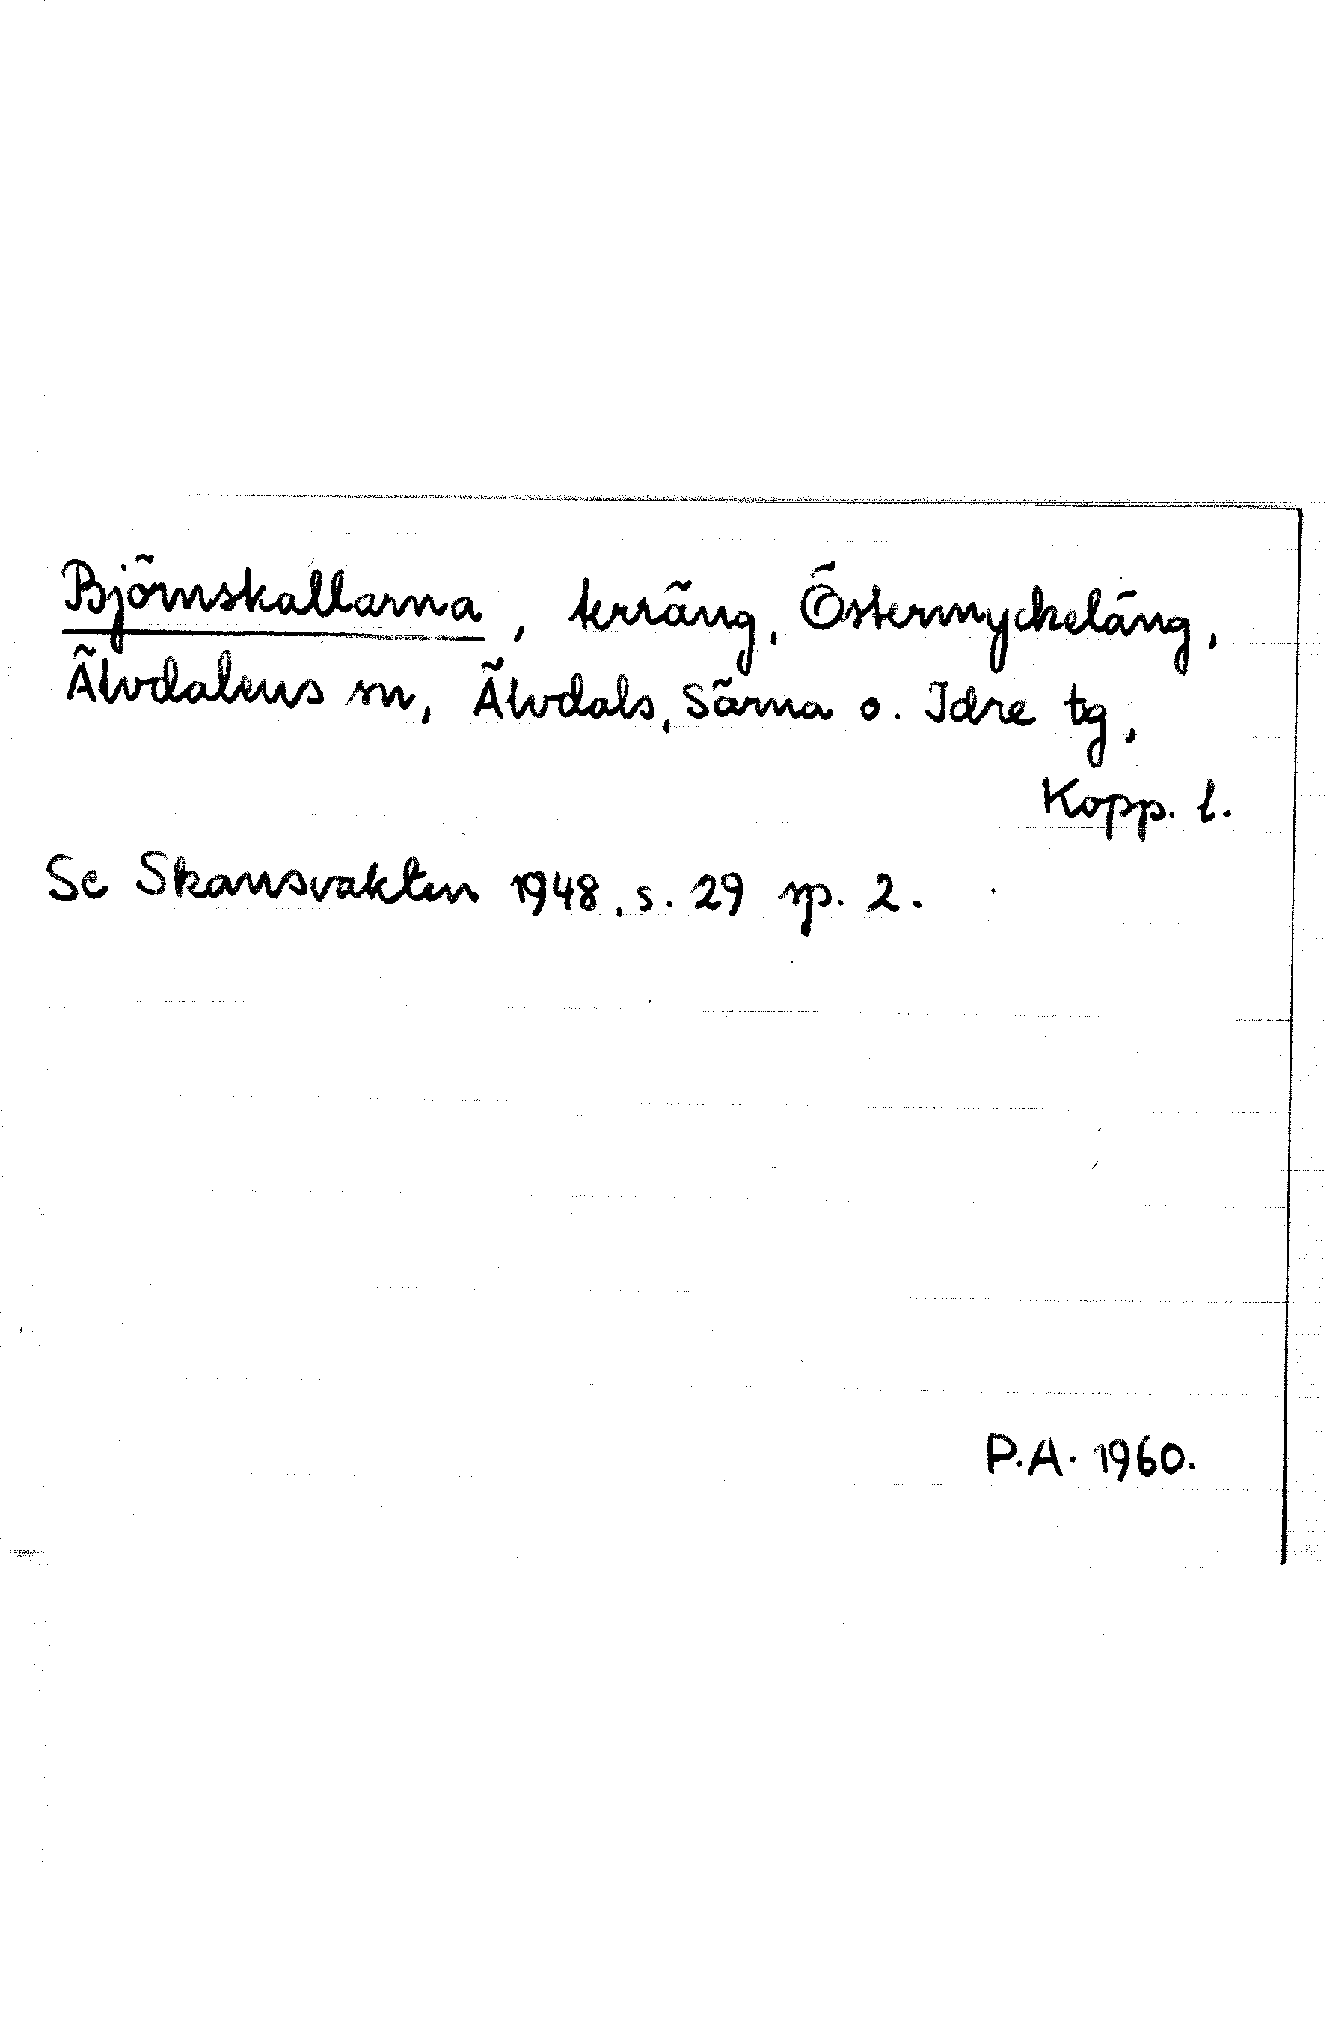 Björnskallarna, terräng, Östermyckeläng,
Älvdalens sn, Älvdals, Särna o. Idre tg,
Kopp. l.
Se Skansvakten 1948, s. 29 sp. 2.
P.A. 1960.